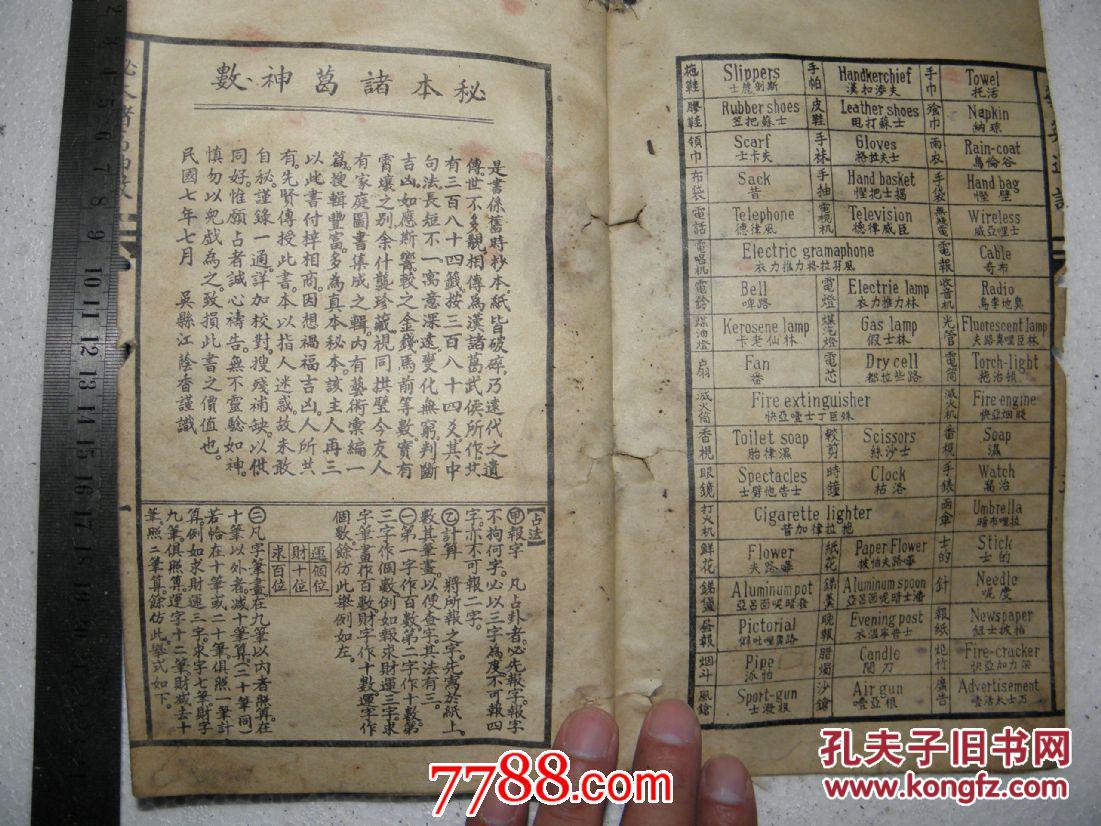 秘本諸葛神數
是書係舊時杪本紙皆破碎。乃遠代之遺
傳。世不多覩。相傳爲漢諸葛武侯所作。共
有三百八十四籤。按三百八十四爻。其中
句法長短不一。寓意深遠。變化無窮。判斷
吉凶。如應斯響。較之金錢馬前等數。實有
霄壤之别。余什襲珍藏。視同拱璧。今友人
有家庭圖書集成之輯。内有藝術彙編一
篇。搜輯豐富。多為真本秘本。該主人再三
以此書付梓相商。因想禍福吉凶。人所共
有。先賢傳授此書。本以指人迷惑。故未敢
自秘。謹錄一過。詳加校對。搜殘補缺。以供
同好。惟願占者誠心禱告。無不靈驗如神。
慎勿以兒戲為之。致損此書之價值也。
民國七年七月 吳縣江蔭香謹識
占法
甲 報字 凡占卦者。必先報字。報字
不拘何字。必以三字為度。不可報四
字。亦不可報二字。
乙 計算 將所報之字。先寫於紙上。
數其筆畫。以便查字。其法有三。
一 第一字作百數。第二字作十數。第
三字作個數。例如報求財運三字。求
字筆畫作百數。財字作十數。運字作
個數。餘仿此。舉例如左。
運個位
財十位
求百位
三 凡字筆畫在九筆以内者照算。在
十筆以外者。減十筆算(二十筆同)
若恰在十筆或二十筆。俱照一筆計
算。例如求財運三字。求字七筆。財字
九筆。俱照算。運字十二筆。財減去十
筆。照二筆算。餘仿此。舉式如下。
拖鞋 Slippers 手帕 Handkerchief 手巾 Towel
膠鞋 Rubber shoes 皮鞋 Leather shoes 飧巾 Napkin
領巾 Scarf 手袜 Gloves 雨衣 Rain-coat
士卡夫 格拉夫士 烏倫谷
布袋 Sack 手抽 Hand basket 手袋 Hand bag
電話 Telephone 電視机 Television 無綫電 Wireless
德律風 德律威臣 威亞哩士
電唱机 Electric gramaphone 電報 Cable
奇布
電鈴 Bell 電燈 Electrie lamp 收音机 Radio
啤路 衣力推力林
煤油燈 Kerosene lamp 煤汽燈 Gas lamp 光管 Fluorescent lamp
卡老仙林 假士林
扇 Fan 電芯 Dry cell 電筒 Torch-light
番 都拉些路
滅火筒 Fire extinguisher 滅火机 Fire engine
香梘 Toilet soap 鉸剪 Scissors 番梘 Soap
胎律濕 絲沙士 濕
眼鏡 Spectacles 時鐘 Clock 手錶 Watch
枯洛
打火机 Cigarette lighter 雨傘 Umbrella
昔加律拉拖 暗布哩拉
鮮花 Flower 紙花 Paper Flower 士的 Stick
士的
銻煲 Aluminum pot 銻羹 Aluminum spoon 針 Needle
呢度
畫報 Pictorial 晚報 Evening post 報紙 Newspaper
烟斗 Pipe 腊燭 Candle 炮竹 Fire-cracker
派怕
風鎗 Sport-gun 沙鎗 Air gun 廣告 Advertisement
孔夫子旧书网
www.kongfz.com
7788.com